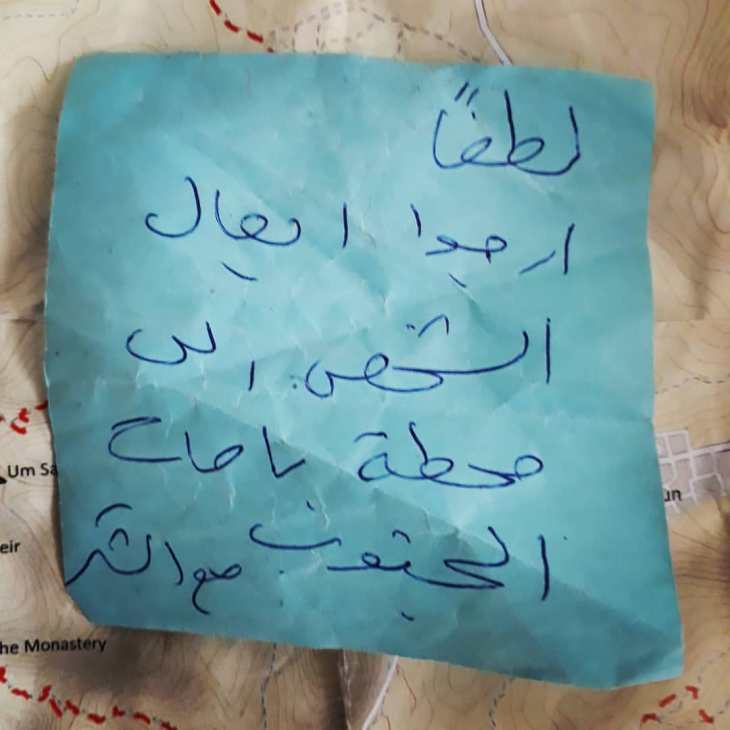 لطفاً
ارجوا ايصال
الشخص الى
محطة باصات
الجنوب مع الشكر
Um Sa
un
eir
he Monastery